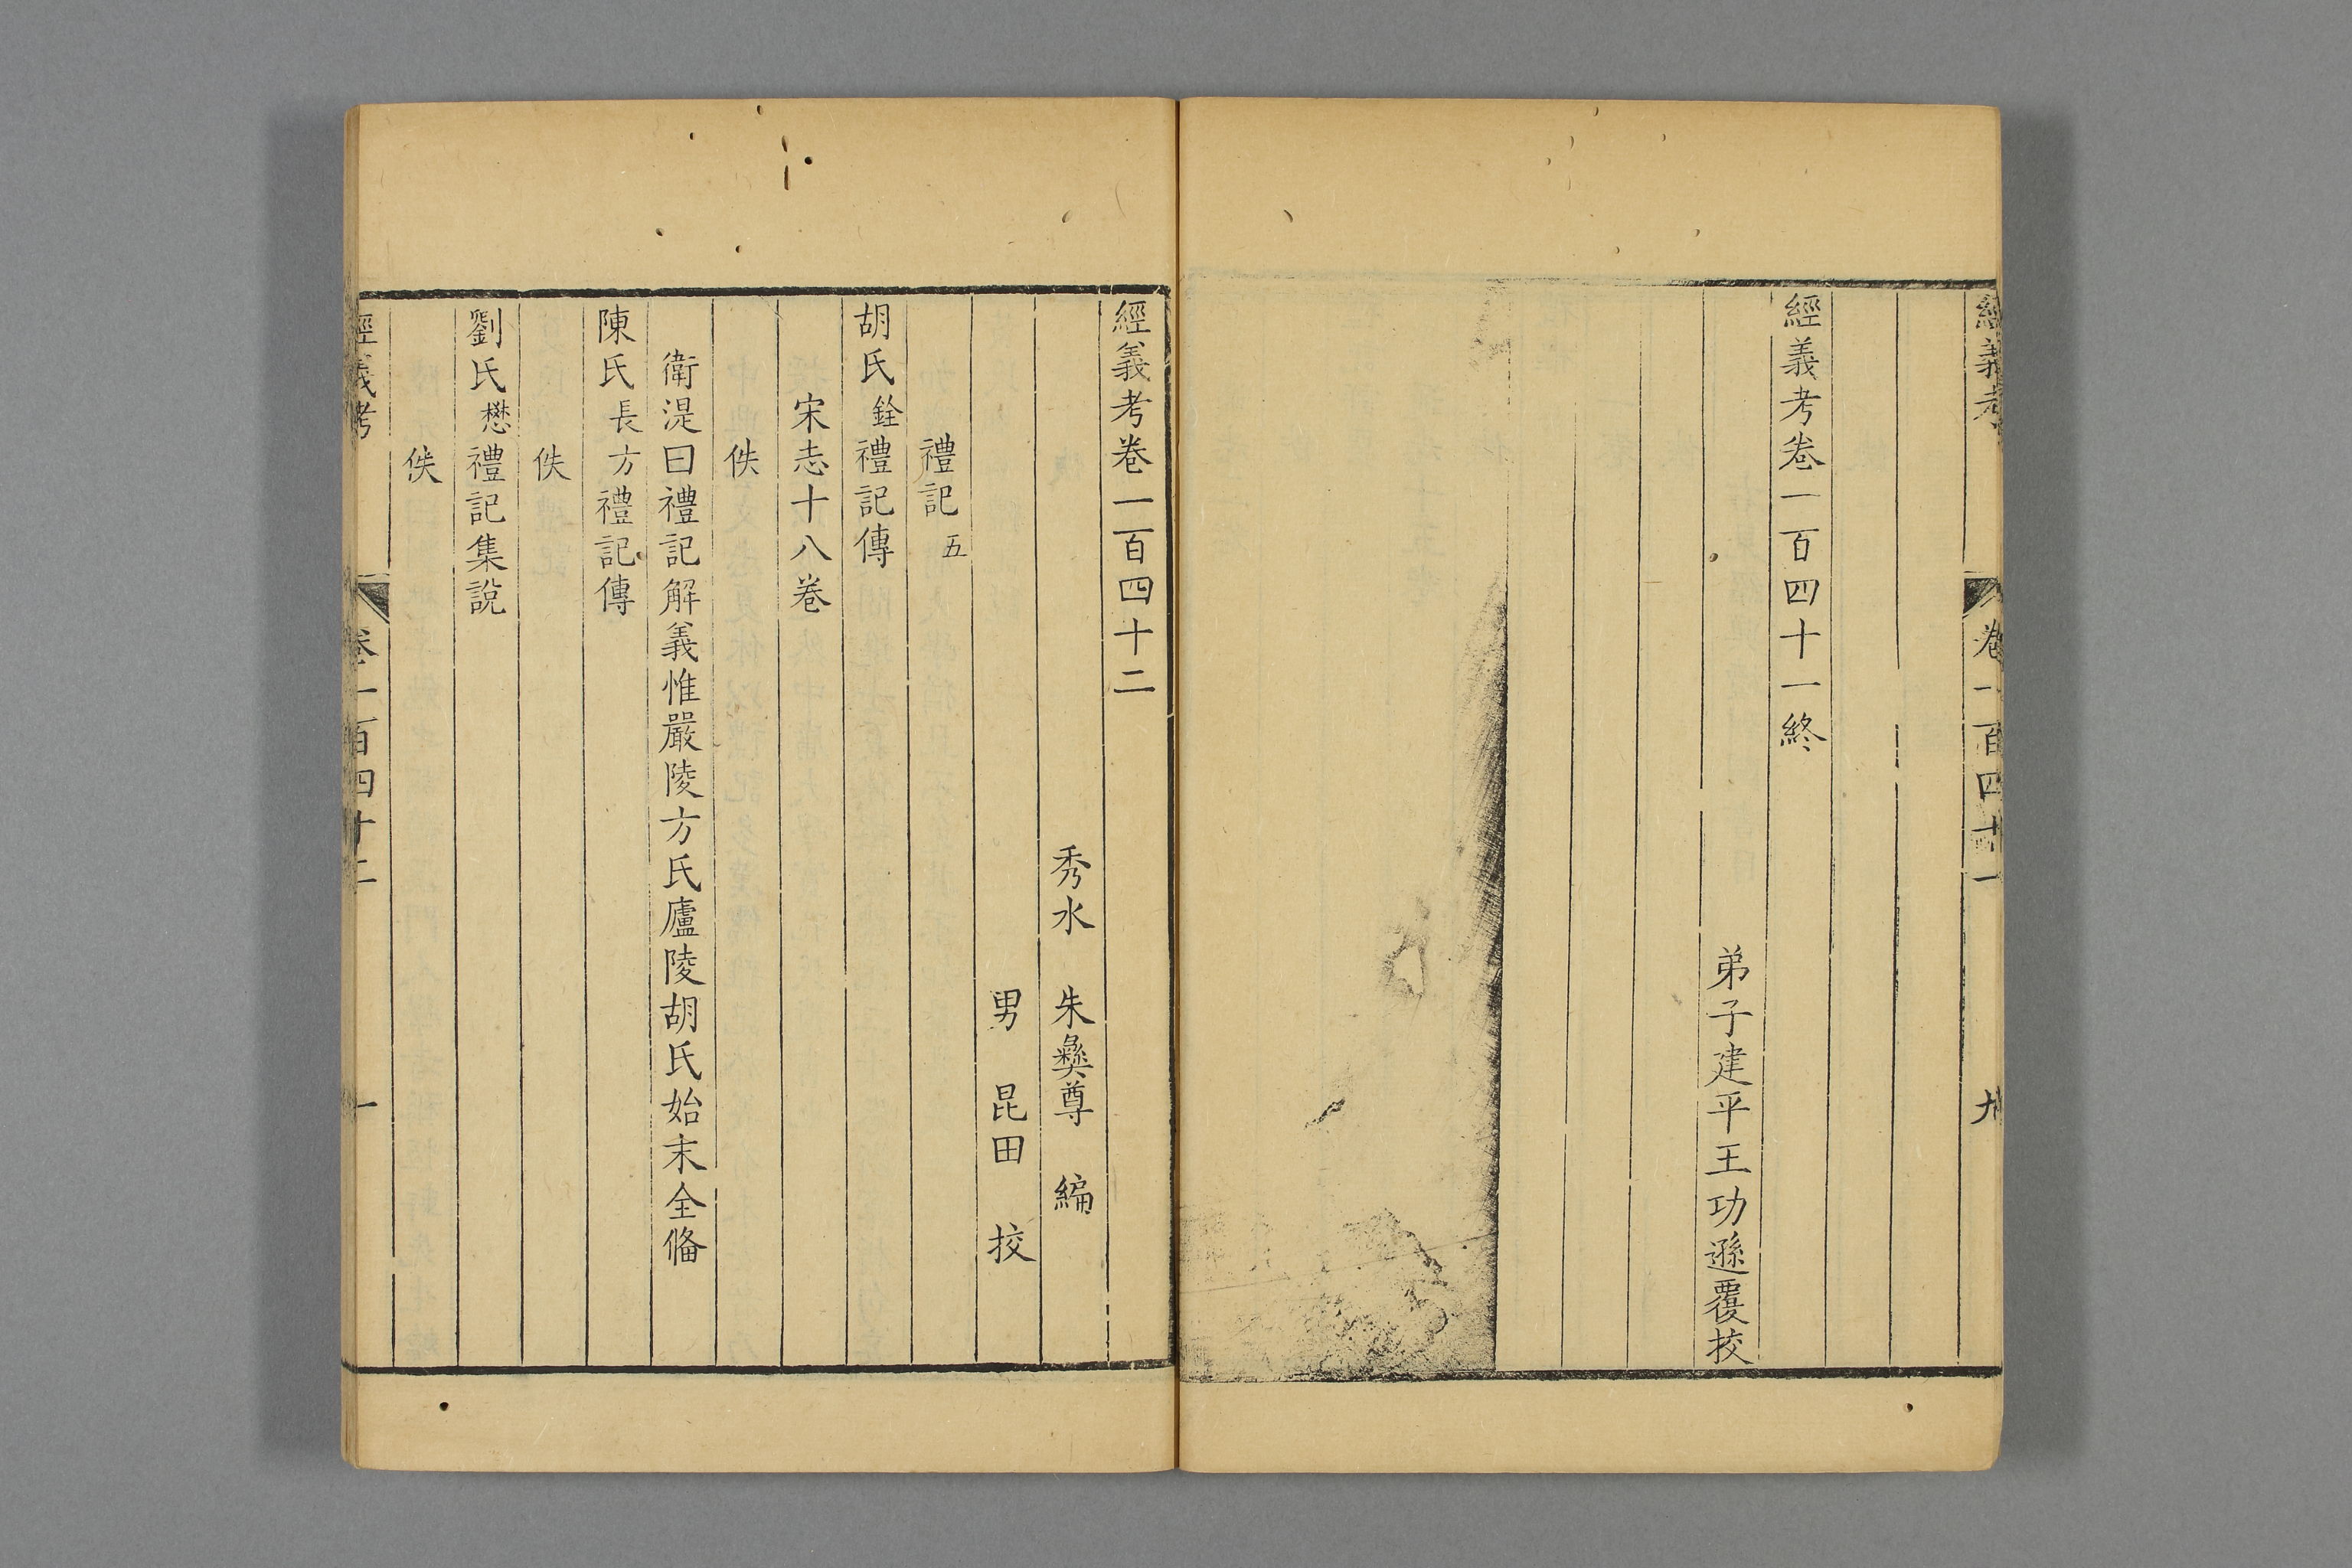 經義考
卷一百四十一
九
經義考卷一百四十一終
弟子建平王功遜覆挍
經義考卷一百四十二
秀水 朱彝尊 編
男 昆田 挍
禮記 五
胡氏銓禮記傳
宋志十八卷
佚
衛湜曰禮記解義惟嚴陵方氏廬陵胡氏始末全俻
陳氏長方禮記傳
佚
劉氏懋禮記集說
佚
經義考
卷一百四十二
一